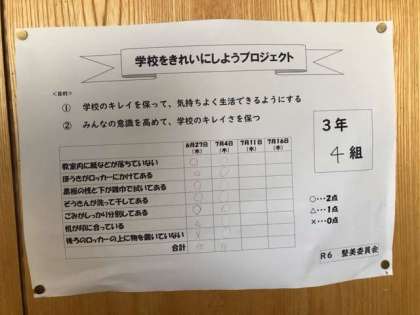 学校をきれいにしようプロジェクト
<目的>
① 学校のキレイを保って、気持ちよく生活できるようにする
② みんなの意識を高めて、学校のキレイさを保つ
3年
4組
6月27日 7月4日 7月11日 7月16日
(木) (木) (木) (火)
教室内に紙などが落ちていない
ほうきがロッカーにかけてある
黒板の桟と下が雑巾で拭いてある
ぞうきんが洗って干してある
ごみがしっかり分別してある
机が印に合っている
後ろのロッカーの上に物を置いていない
合計
○・・・2点
△・・・1点
×・・・0点
R6 整美委員会